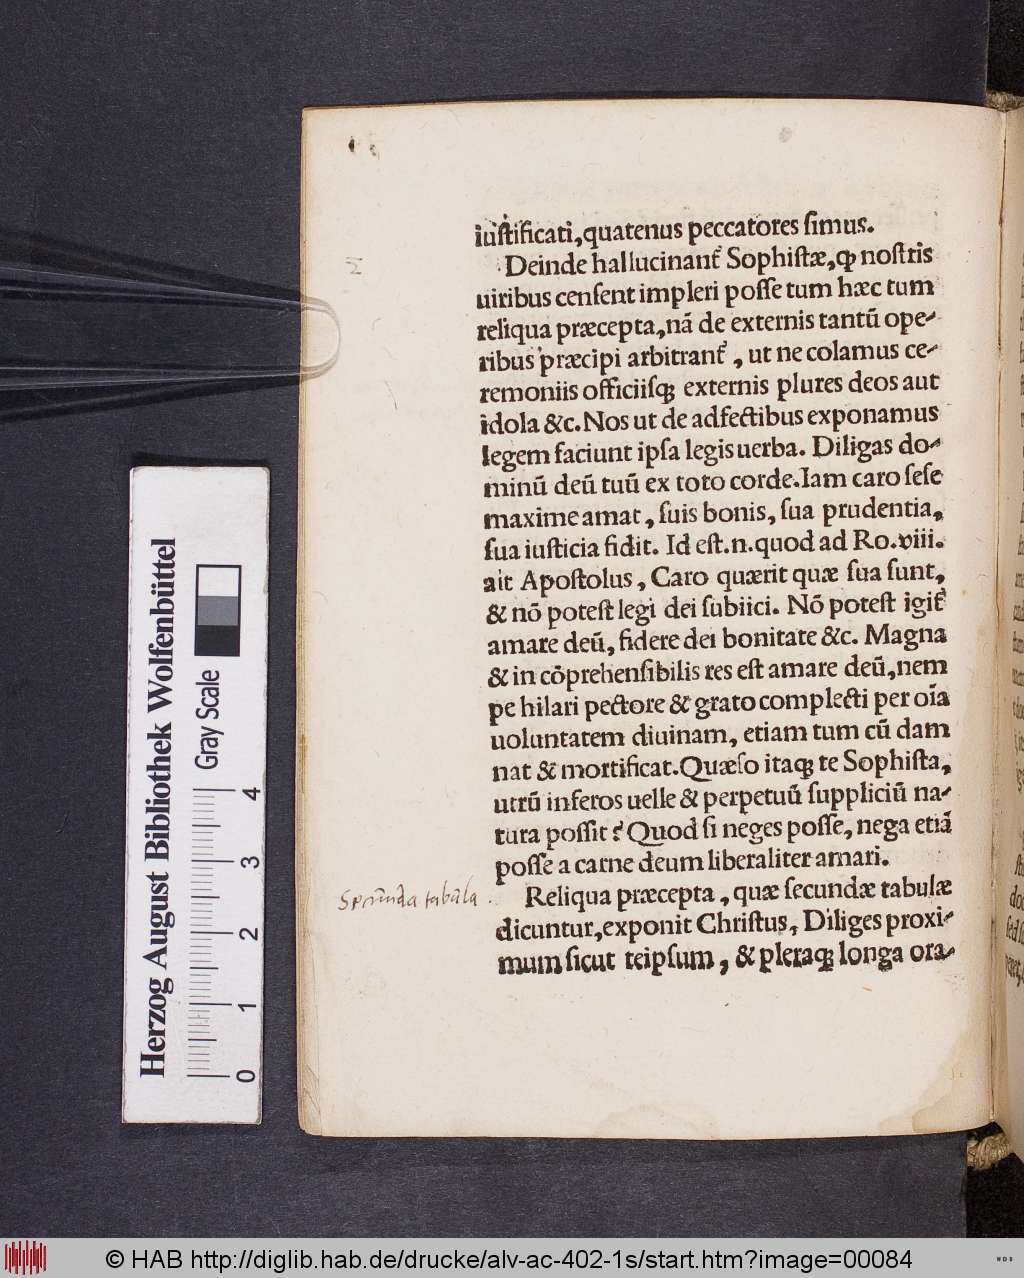 iustificati,quatenus peccatores simus.
Deinde hallucinant᷑ Sophistæ,ꝙ nostris
uiribus censent impleri posse tum hæc tum
reliqua præcepta,nã de externis tantũ ope-
ribus præcipi arbitrant᷑, ut ne colamus ce-
remoniis officiisq; externis plures deos aut
idola &c.Nos ut de adfectibus exponamus
legem faciunt ipsa legis uerba. Diligas do-
minũ deũ tuũ ex toto corde.Iam caro sese
maxime amat, suis bonis, sua prudentia,
sua iusticia fidit. Id est.n.quod ad Ro.viii.
ait Apostolus, Caro quærit quæ sua sunt,
& nõ potest legi dei subiici. Nõ potest igit᷑
amare deũ, fidere dei bonitate &c. Magna
& in cõprehensibilis res est amare deũ,nem
pe hilari pectore & grato complecti per oĩa
uoluntatem diuinam, etiam tum cũ dam
nat & mortificat.Quæso itaq; te Sophista,
utrũ inferos uelle & perpetuũ suppliciũ na-
tura possit? Quod si neges posse, nega etiã
posse a carne deum liberaliter amari.
Secunda tabula.
Reliqua præcepta, quæ secundæ tabulæ
dicuntur,exponit Christus, Diliges proxi-
mum sicut teipsum, & pleraq; longa ora-
Herzog August Bibliothek Wolfenbüttel
Gray Scale
0 1 2 3 4
© HAB http://diglib.hab.de/drucke/alv-ac-402-1s/start.htm?image=00084